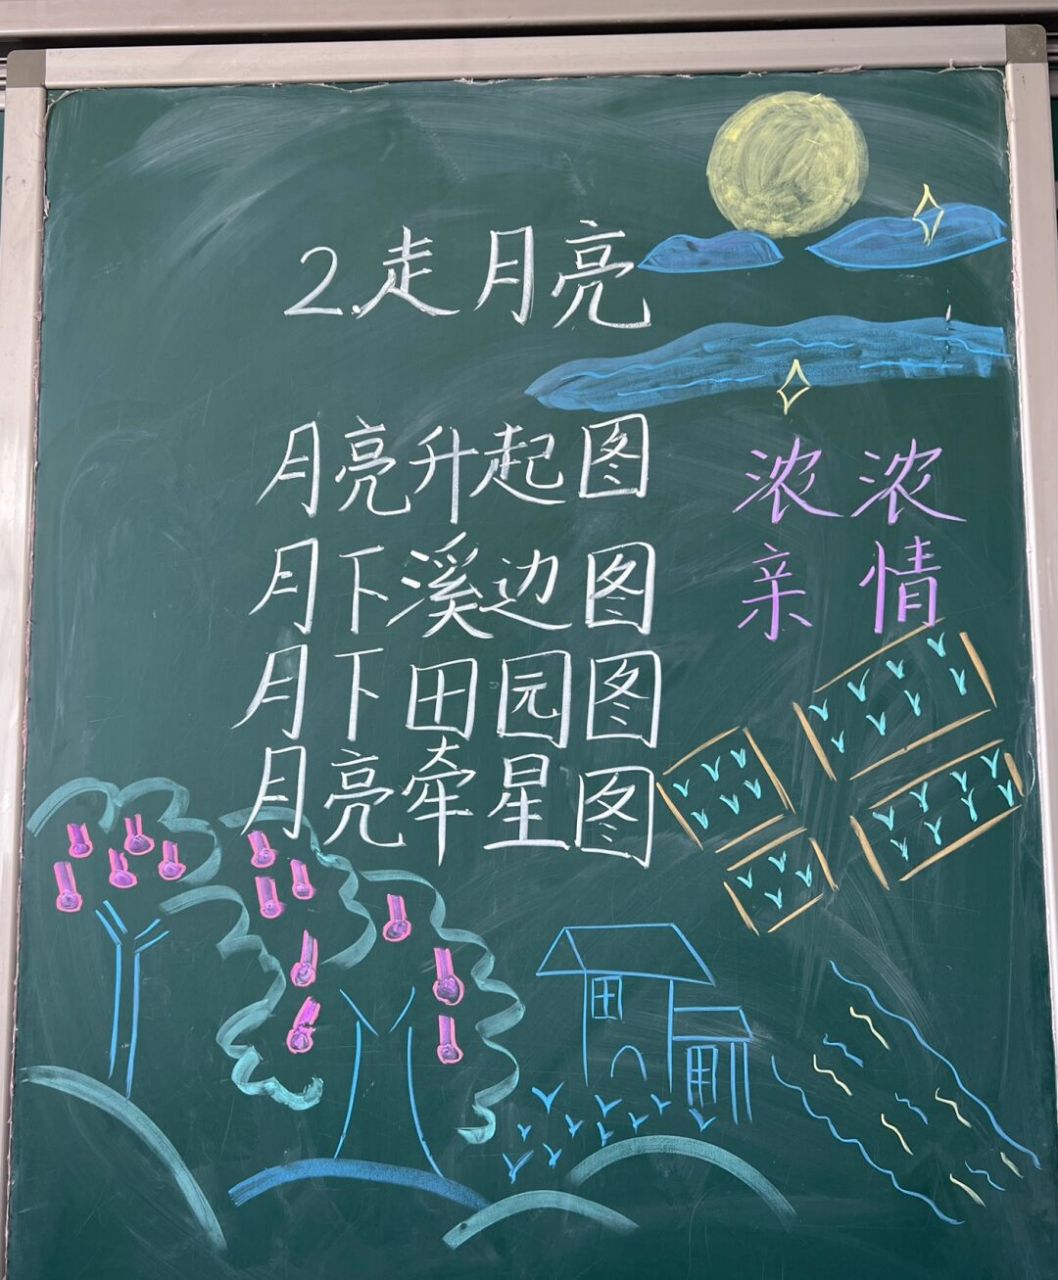 2.走月亮
月亮升起图
月下溪边图
月下田园图
月亮牵星图
浓浓
亲情